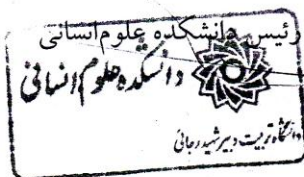 رئیس دانشکده علوم انسانی
دانشکده علوم انسانی
دانشگاه تربیت دبیر شهید رجائی